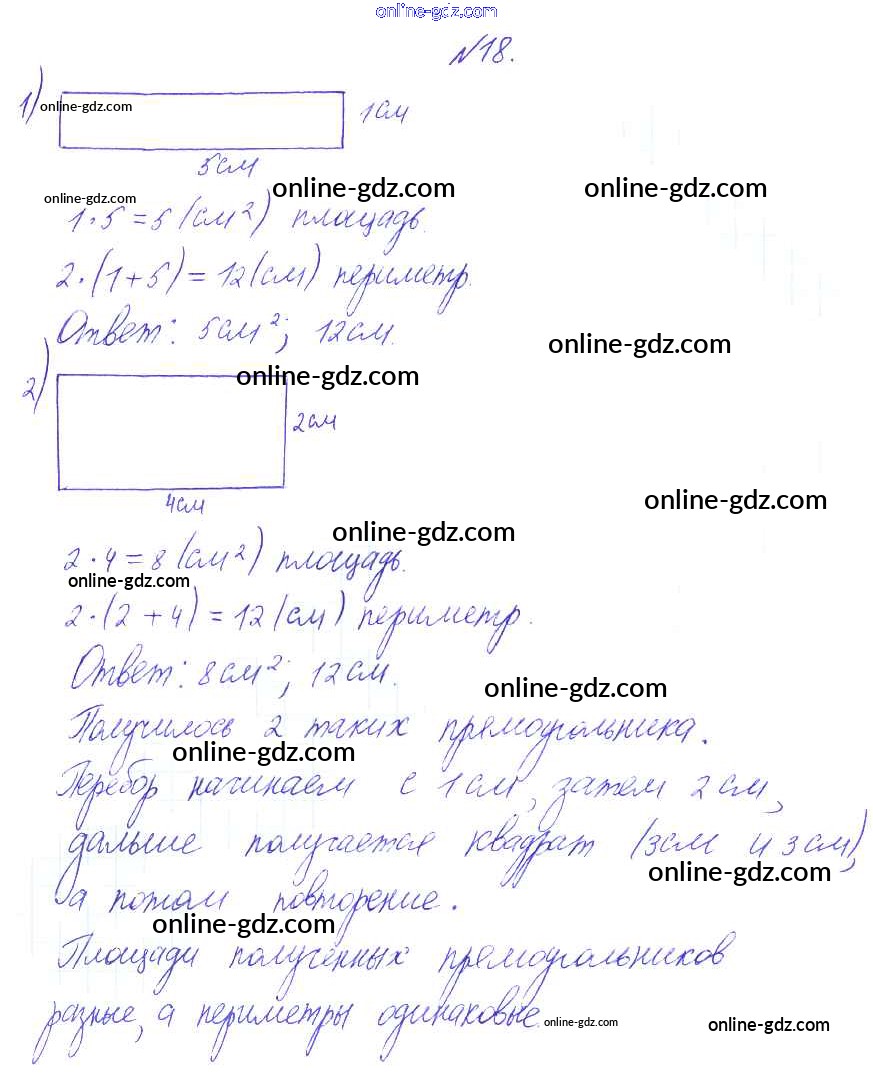 online-gdz.com
№18.
1)
online-gdz.com
1см
5см
online-gdz.com
online-gdz.com
online-gdz.com
1·5=5(см²) площадь.
2·(1+5)=12(см) периметр.
Ответ: 5см²; 12см.
online-gdz.com
2)
online-gdz.com
2см
4см
online-gdz.com
online-gdz.com
2·4=8(см²) площадь.
online-gdz.com
2·(2+4)=12(см) периметр.
Ответ: 8см²; 12см.
online-gdz.com
Получилось 2 таких прямоугольника.
online-gdz.com
Перебор начинаем с 1см, затем 2см,
дальше получается квадрат (3см и 3см),
online-gdz.com
а потом повторение.
online-gdz.com
Площади полученных прямоугольников
разные, а периметры одинаковые.
online-gdz.com
online-gdz.com